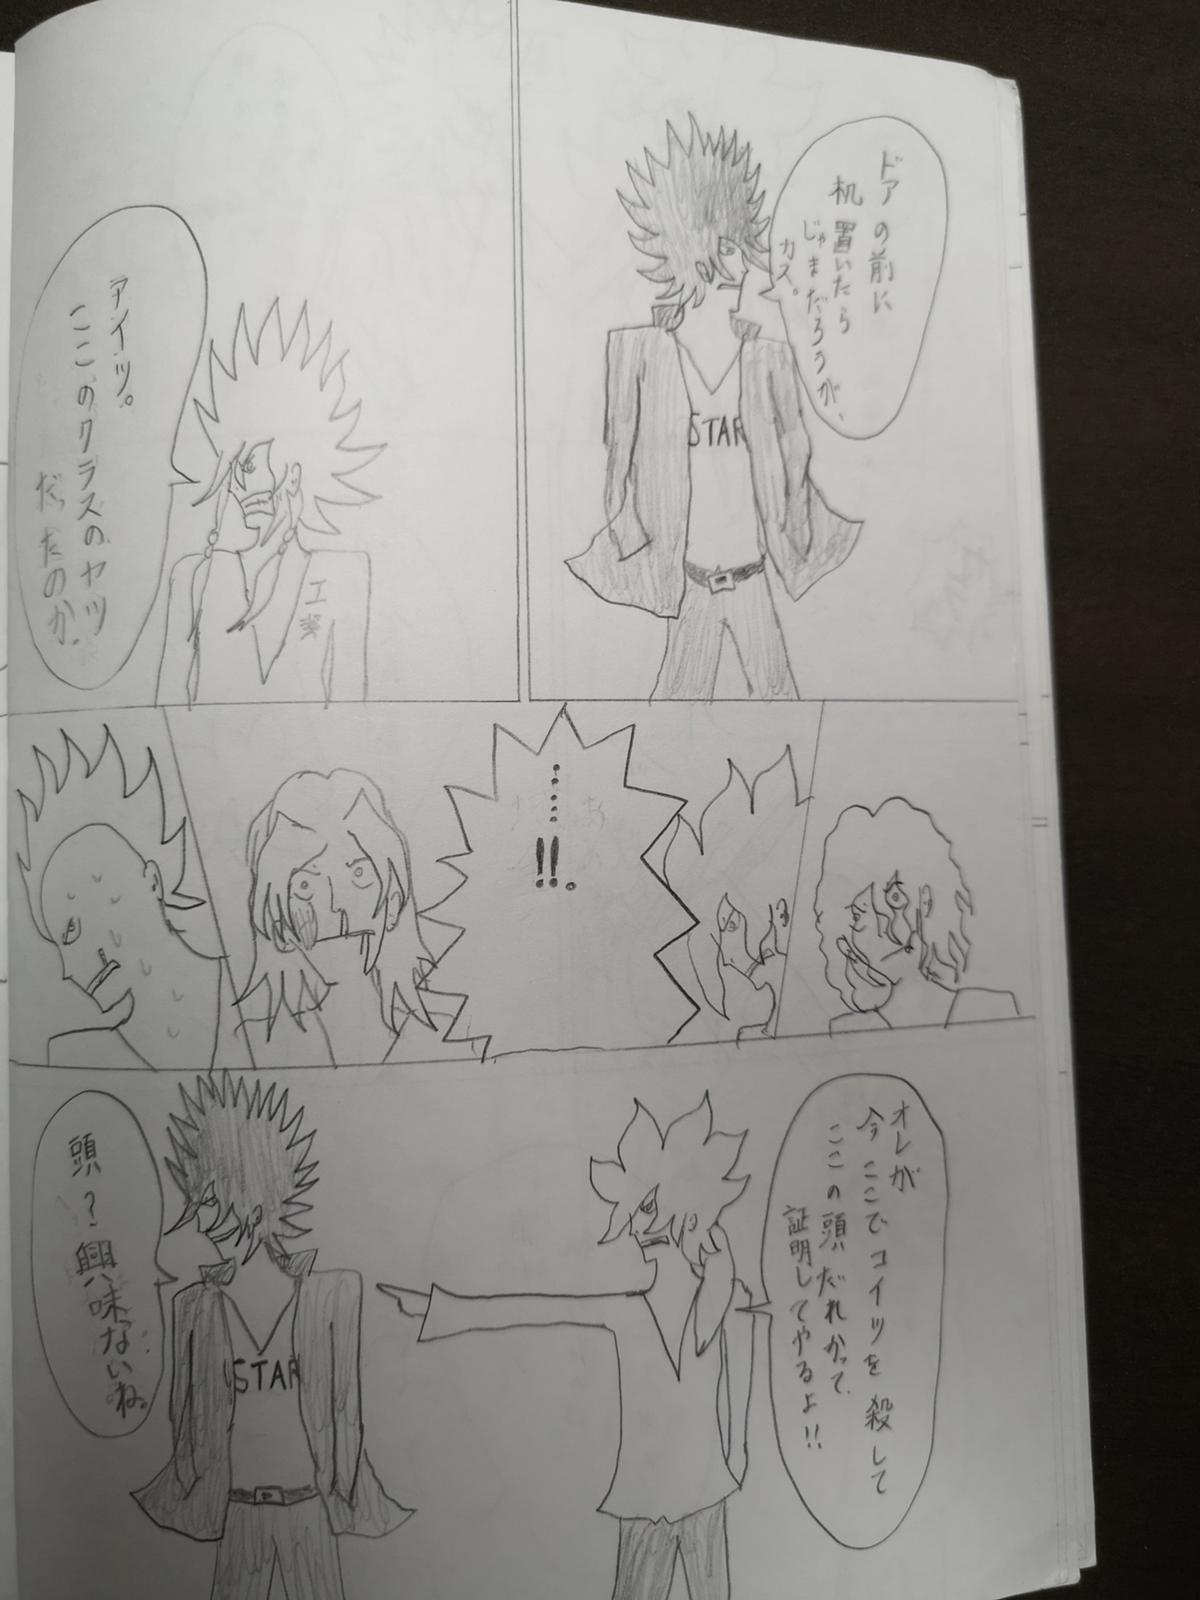 ドアの前に
机置いたら
じゃまだろうが、
カス。
STAR
アイツ。
ここのクラスのヤツ
だったのか。
工業
……!!。
オレが
今ここでコイツを殺して
ここの頭だれかって、
証明してやるよ!!
頭?興味ないね。
STAR